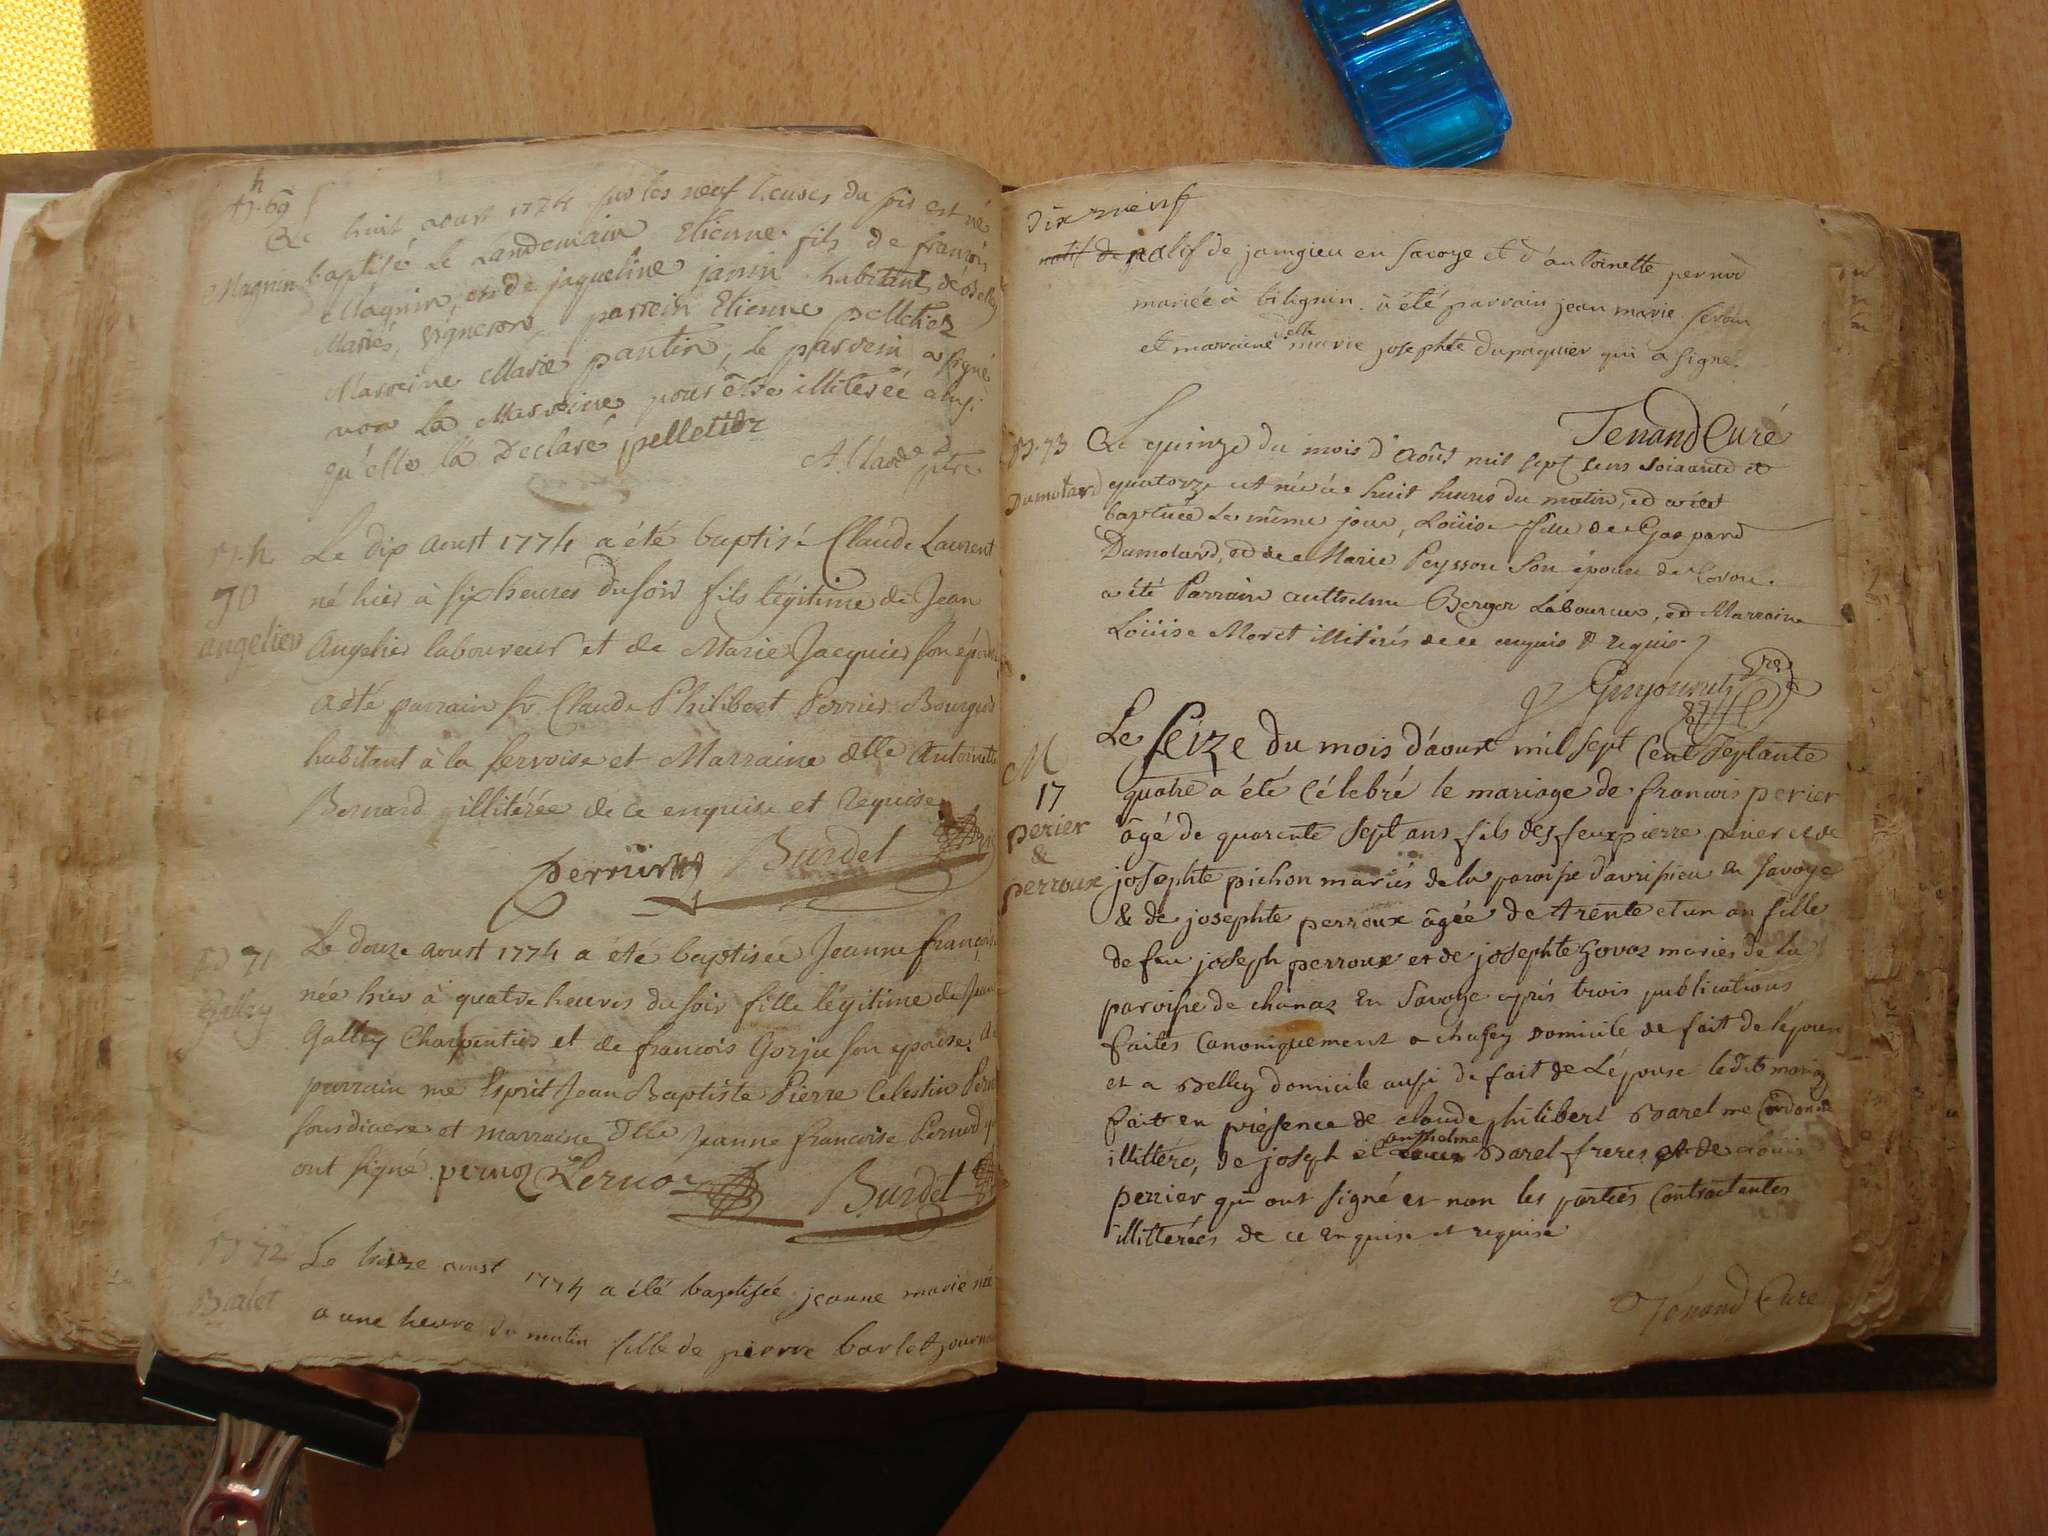 h
B. 69
Le huit aoust 1774 sur les neuf heures du soir est né
Magnin
baptisé le Landemain Etienne fils de françois
Magnin, et de jaqueline janin habitant de Belley
Mariés, vigneron, parrein Etienne pelletier
Marreine Marie pantin, le parrein a signé
non la Marreine pour être illiterée ainsi
qu'elle la Declaré pelletier
Ptre
B. h.
70
angelier
Le dix Aoust 1774 a été baptisé Claude Laurent
né hier à six heures du soir fils légitime de Jean
Angelier laboureur et de Marie Jacquier son épouse
a été parrain sr Claude Philibert Perrier Bourgeois
habitant à la servoise et Marraine dlle Antoinette
Bernard illitérée de ce enquise et requise
perrier Burdet
B 71
Galley
Le douze Aoust 1774 a été baptisée Jeanne françoise
née hier à quatre heures du soir fille légitime de Jean
Galley Charpentier et de francois Gorju son epouse,
parrain me Esprit Jean Baptiste Pierre Celestin
sousdiacre et marraine Dlle Jeanne francoise Pernod
ont signé. pernoz Pernoz Burdet
B 72
Barlet
Le treize aoust 1774 a été baptisée jeanne marie née
a une heure du matin fille de pierre barlet journa
dix neuf
natif de natif de jamgieu en Savoye et d'antoinette pernod
mariée à bilignin. à été parrain jean marie
et marraine delle marie josephte dupaquier qui a signé.
Tenand Curé
B. 73
Dumolard
Le quinze du mois d'Août mil sept cens soixante et
quatorze est née à huit heures du matin, et a été
baptisée le même jour, Loüise fille de Gaspard
Dumolard, et de Marie Peysson son épouse de Coron.
a été Parrain anthelme Berger Laboureur, et Marraine
Loüise Moret illitérés de ce enquis & requis.
M
17
perier
&
perroux
Le seize du mois d'aoust mil sept cent septante
quatre a été célébré le mariage de francois perier
âgé de quarente sept ans fils des feux pierre perier et de
josephte pichon mariés de la paroisse d'avrisieu en Savoye
& de josephte perroux âgée de trente et un an fille
de feu joseph perroux et de josephte Govoz mariés de la
paroisse de chanaz en Savoye après trois publications
faites canoniquement a chasey domicile de fait de lépoux
et a Belley domicile aussi de fait de Lépouse ledit mariage
fait en présence de claude philibert Barel me Cordonnier
illitéré, de joseph et anthelme Barel freres et de
perrier qui ont signé et non les parties contractantes
illitterées de ce enquise et requise
Tenand Curé